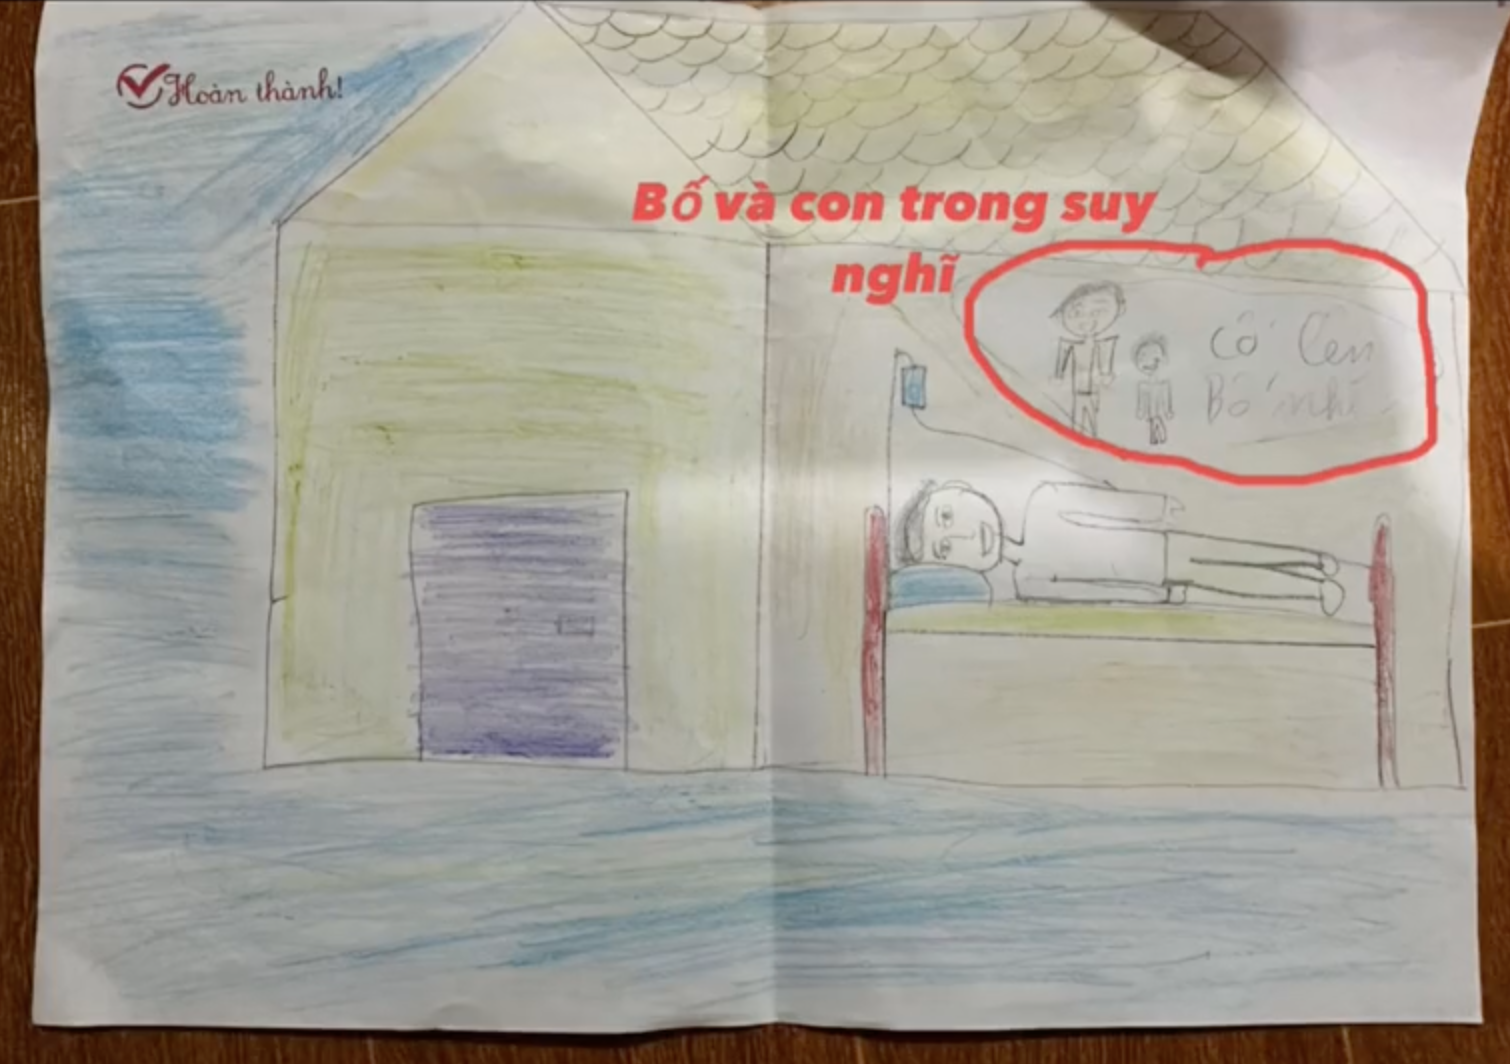 Hoàn thành!
Bố và con trong suy
nghĩ
Cố lên
Bố nhé